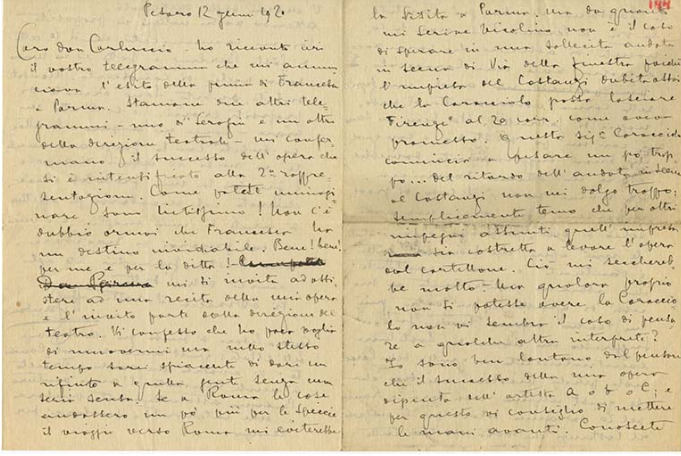 Pesaro 12 genn 1920
Caro don Carluccio - ho ricevuto ieri
il vostro telegramma che mi annun
ciava l'esito della prima di Francesca
a Parma. Stamane due altri tele-
grammi - uno di Serafin e un altro
della direzione teatrale - mi confer
mano il successo dell'opera che
si è intensificato alla 2ª rappre
sentazione. Come potete immagi
nare sono lietissimo! Non c'è
dubbio ormai che Francesca ha
un destino invidiabile. Bene! bene!
per me e per la ditta!
Da Parma mi si invita ad assi
stere ad una recita della mia opera
e l'invito parte dalla direzione del
teatro. Vi confesso che ho poca voglia
di muovermi ma nello stesso
tempo sarei spiacente di dare un
rifiuto a quella gente senza una
seria scusa. Se a Roma le cose
andassero un pò più per le spiccie
il viaggio verso Roma mi eviterebbe
144
la gita a Parma. Ma da quanto
mi scrive Nicolino non è il caso
di sperare in una sollecita andata
in scena di Via della finestra perchè
l'impresa del Costanzi dubita assai
che la Caracciolo possa lasciare
Firenze al 20 corr. come aveva
promesso. Questa Sigª Caracciolo
comincia a pesare un pò trop
po... del ritardo dell'andata in scena
al Costanzi non mi dolgo troppo:
semplicemente temo che per altri
impegni assunti quell'impresa
sia costretta a levare l'opera
dal cartellone. Ciò mi seccherebb
be molto. Ma qualora proprio
non si potesse avere la Caraccio
lo non vi sembra il caso di pensa
re a qualche altra interprete?
Io sono ben lontano dal pensare
che il successo della mia opera
dipenda dall'artista A o B o C; e
per questo vi consiglio di mettere
le mani avanti. Conoscete